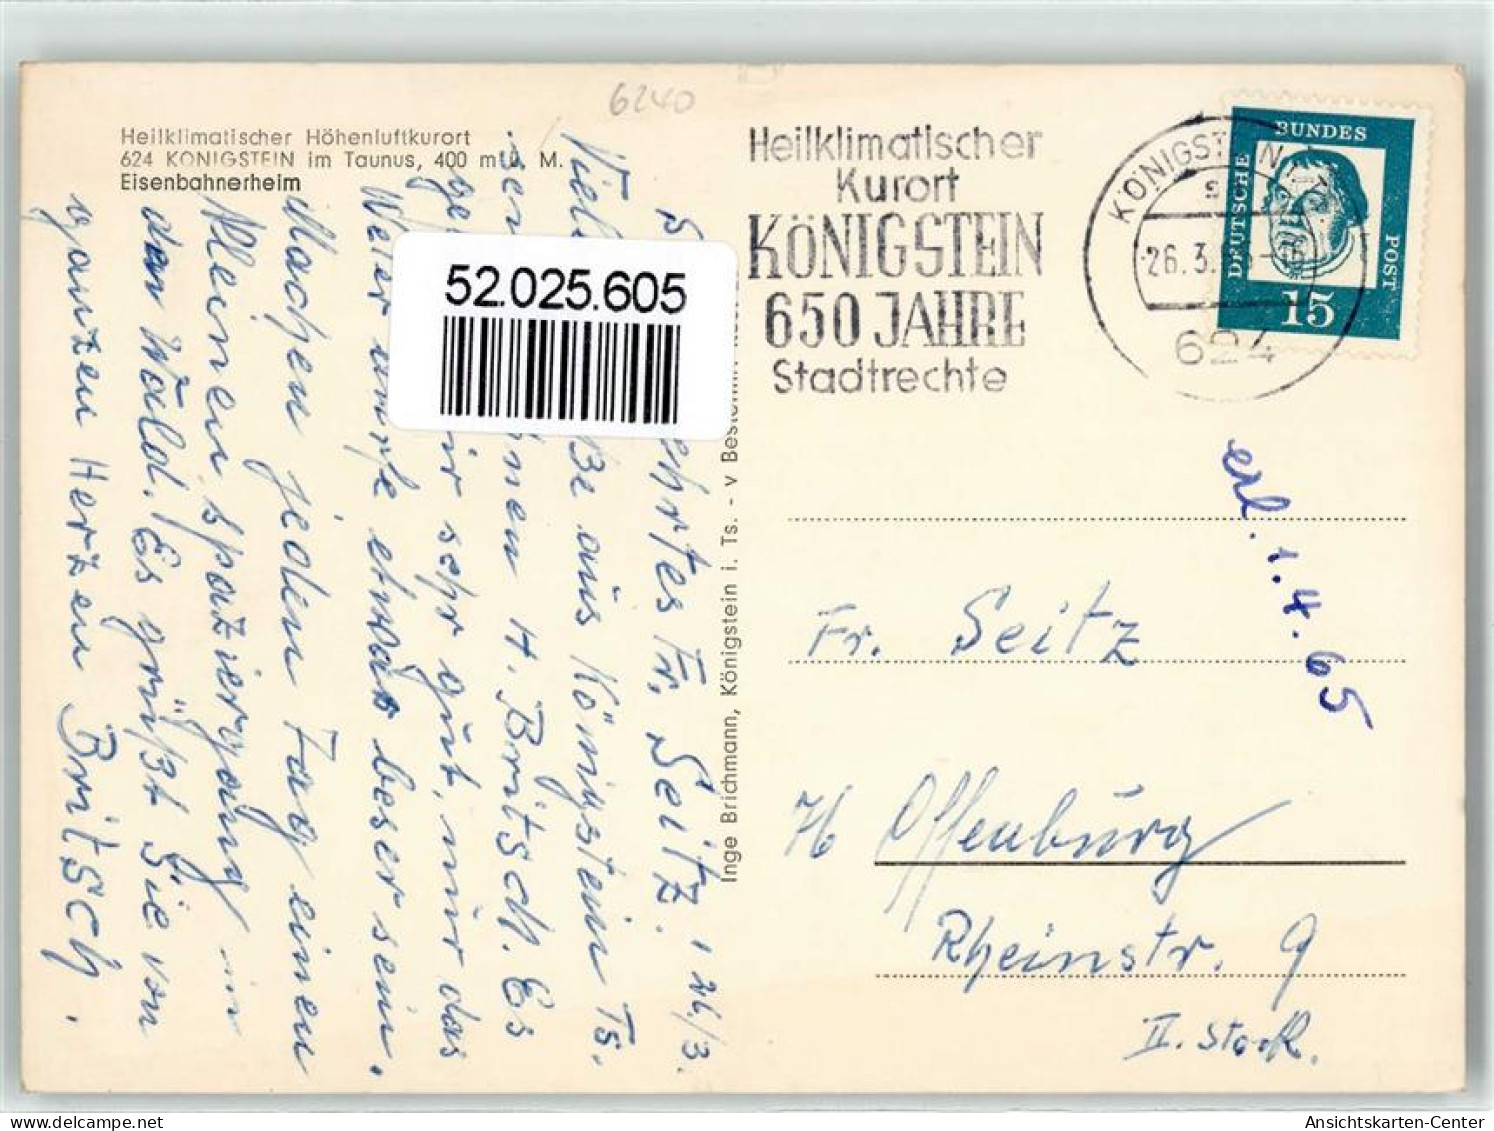 6240
Heilklimatischer Höhenluftkurort
624 KÖNIGSTEIN im Taunus, 400 m ü. M.
Eisenbahnerheim
26/3.
ehrtes Fr. Seitz.
Viele aus Königstein Ts.
H. Britsch. Es
sehr gut, nur das
Weter umfte etwas besser sein.
Machen jeden Tag einen
kleinen spaziergang in
den Wald. Es grüßt Sie von
ganzen Herzen Britsch.
52.025.605
Inge Brichmann, Königstein i. Ts. - v
Heilklimatischer
Kurort
KÖNIGSTEIN
650 JAHRE
Stadtrechte
KÖNIGSTEIN
26.3.
624
DEUTSCHE
BUNDES
POST
15
erl. 1.4.65
Fr. Seitz
Offenburg
Rheinstr. 9
II. Stock.
Ansichtskarten-Center